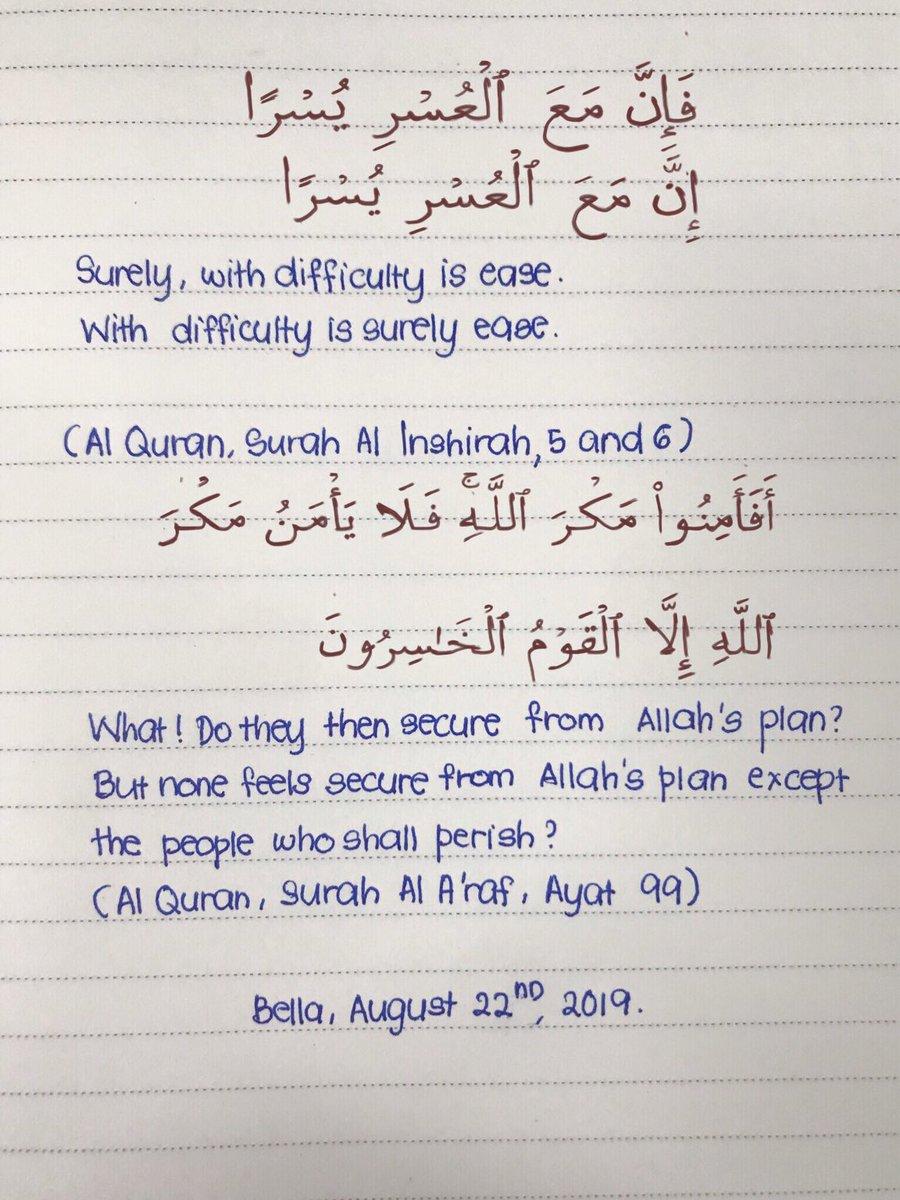 فَإِنَّ مَعَ ٱلْعُسْرِ يُسْرًا
إِنَّ مَعَ ٱلْعُسْرِ يُسْرًا
Surely, with difficulty is ease.
With difficulty is surely ease.
(Al Quran, Surah Al Inshirah, 5 and 6)
أَفَأَمِنُوا۟ مَكْرَ ٱللَّهِ ۚ فَلَا يَأْمَنُ مَكْرَ
ٱللَّهِ إِلَّا ٱلْقَوْمُ ٱلْخَـٰسِرُونَ
What! Do they then secure from Allah's plan?
But none feels secure from Allah's plan except
the people who shall perish?
(Al Quran, Surah Al A'raf, Ayat 99)
Bella, August 22ND, 2019.